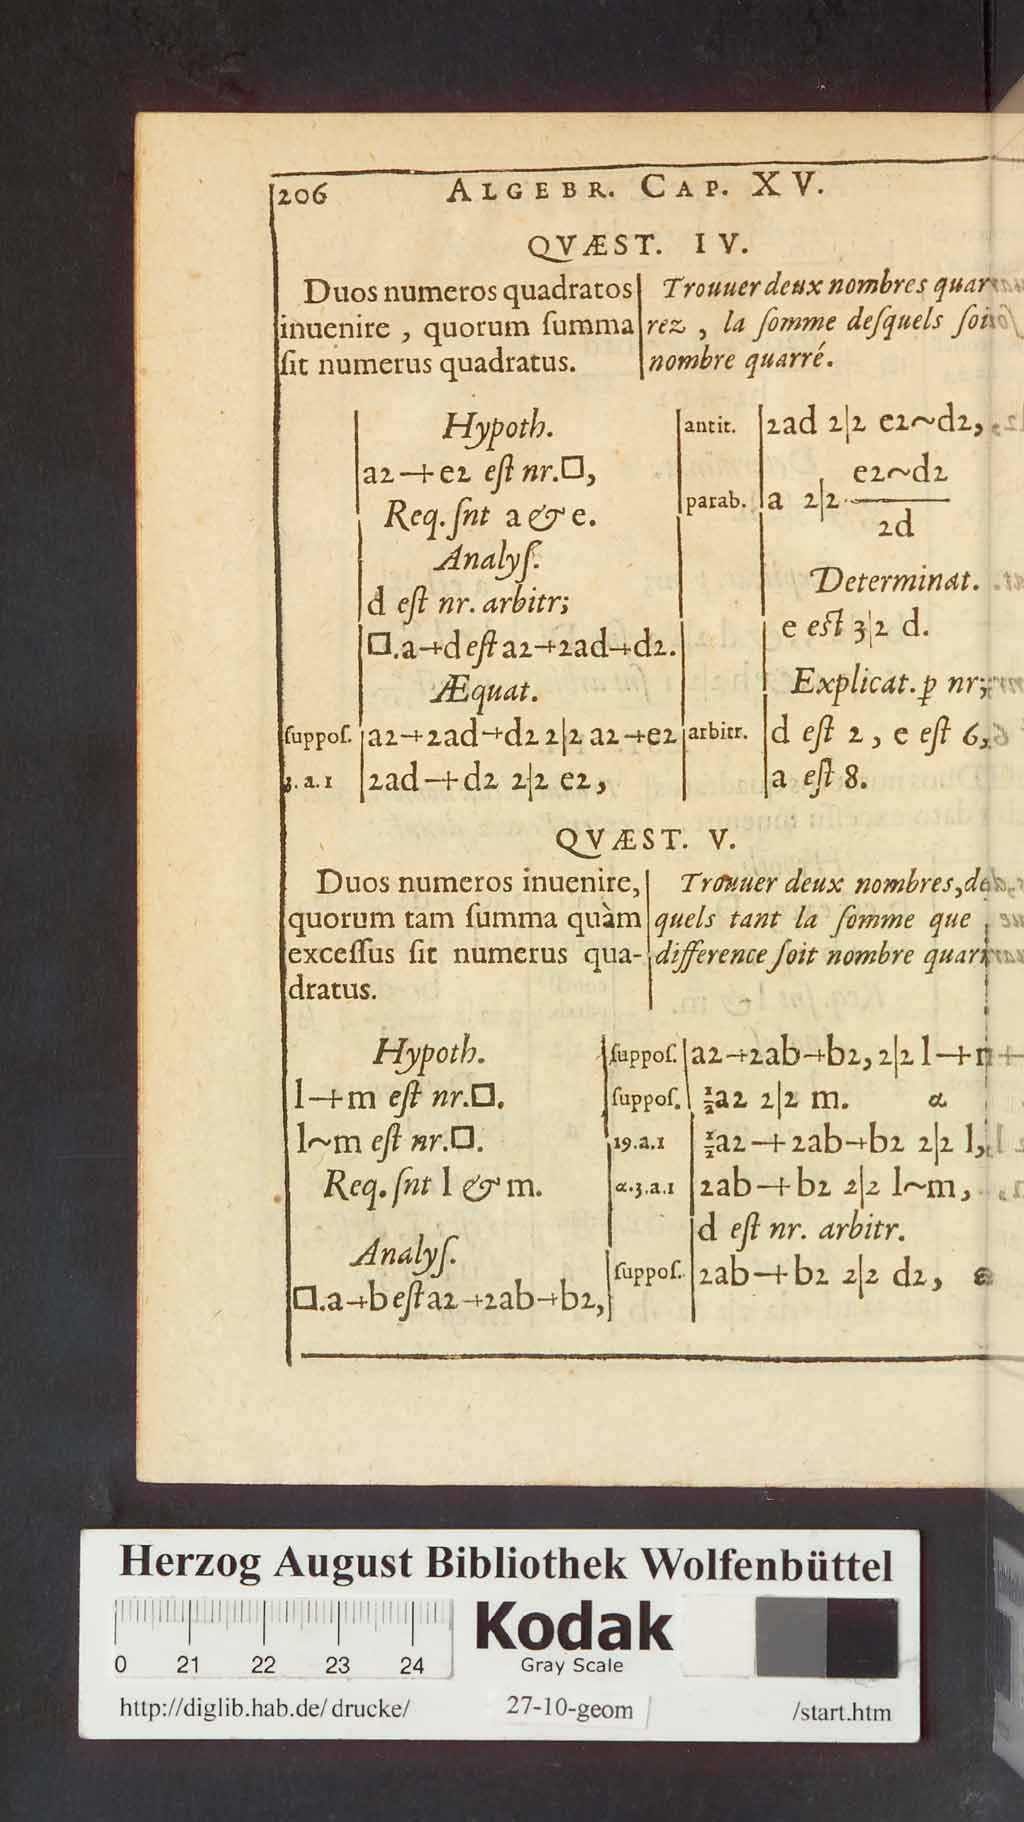 206 ALGEBR. CAP. XV.
QVÆST. IV.
Duos numeros quadratos
inuenire, quorum ſumma
ſit numerus quadratus.
Trouuer deux nombres quar
rez, la ſomme deſquels ſoit
nombre quarré.
Hypoth.
a2-+e2 eſt nr.□,
Req. ſnt a & e.
Analyſ.
d eſt nr. arbitr;
□.a-+d eſt a2-+2ad-+d2.
Æquat.
ſuppoſ. a2-+2ad-+d2 2|2 a2-+e2
3.a.1 2ad-+d2 2|2 e2,
antit. 2ad 2|2 e2~d2,
e2~d2
parab. a 2|2
2d
Determinat.
e eſt 3|2 d.
Explicat. ꝑ nr;
arbitr. d eſt 2, e eſt 6,
a eſt 8.
QVÆST. V.
Duos numeros inuenire,
quorum tam ſumma quàm
exceſſus ſit numerus qua-
dratus.
Trouuer deux nombres,
quels tant la ſomme que
difference ſoit nombre quar
Hypoth.
l-+m eſt nr.□.
l~m eſt nr.□.
Req. ſnt l & m.
Analyſ.
□.a-+b eſt a2-+2ab-+b2,
ſuppoſ. a2-+2ab-+b2, 2|2 l-+
ſuppoſ. ½a2 2|2 m. α
19.a.1 ½a2-+2ab-+b2 2|2 l,
α.3.a.1 2ab-+b2 2|2 l~m,
d eſt nr. arbitr.
ſuppoſ. 2ab-+b2 2|2 d2,
Herzog August Bibliothek Wolfenbüttel
0 21 22 23 24
Kodak
Gray Scale
http://diglib.hab.de/drucke/ 27-10-geom /start.htm